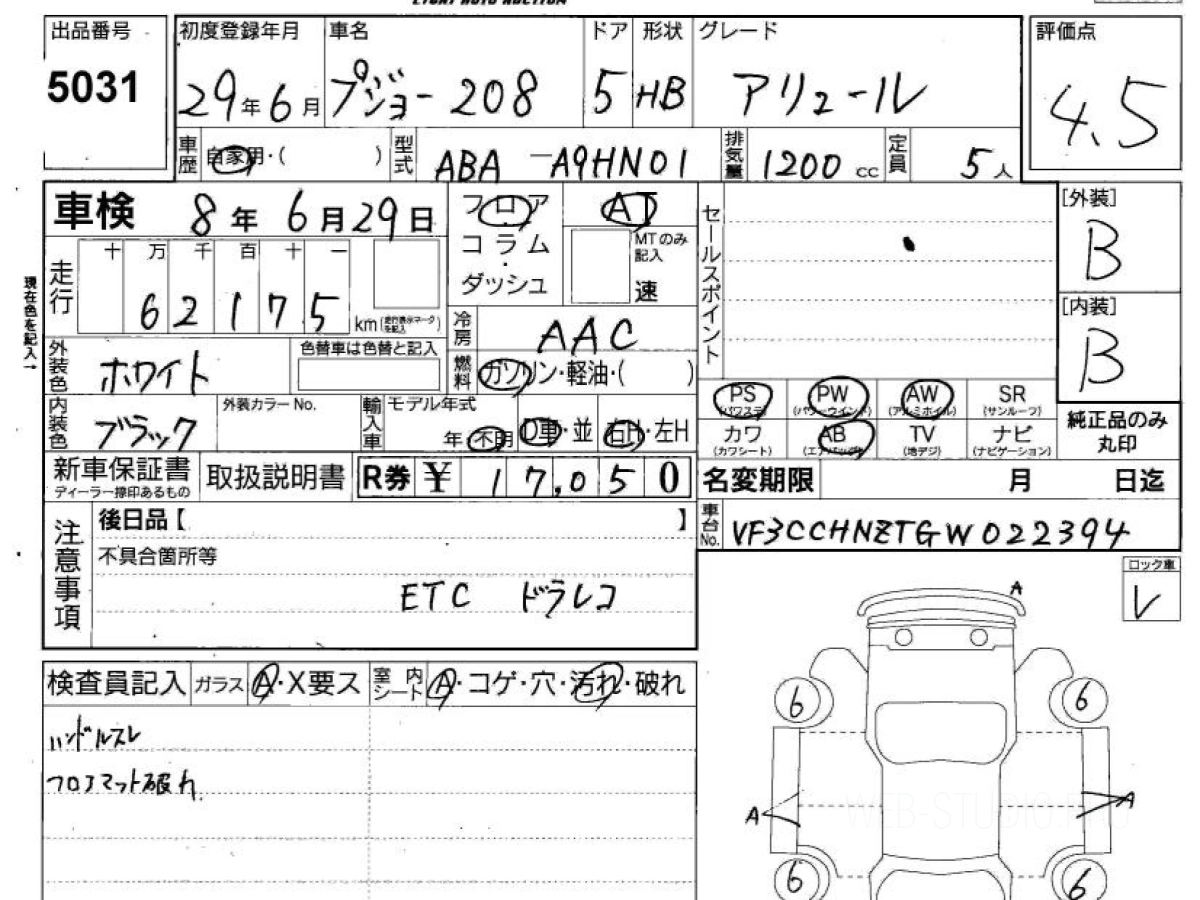 EIGHT AUTO AUCTION
出品番号 初度登録年月 車名 ドア 形状 グレード 評価点
5031 29年6月 プジョー 208 5 HB アリュール 4.5
車歴 自家用・( ) 型式 ABA-A9HN01 排気量 1200 cc 定員 5人
車検 8年6月29日 フロア AT セールスポイント [外装]
コラム MTのみ記入 B
・
ダッシュ 速
走行 十 万 千 百 十 一
6 2 1 7 5 km (走行表示マークを記入) [内装]
現在色を記入→ 冷房 AAC B
外装色 ホワイト 色替車は色替と記入 燃料 ガソリン・軽油・( )
PS (パワステ) PW (パワーウインド) AW (アルミホイル) SR (サンルーフ)
内装色 ブラック 外装カラーNo. 輸入車 モデル年式 年・不明 D車・並 右H・左H
カワ (カワシート) AB (エアバッグ) TV (地デジ) ナビ (ナビゲーション) 純正品のみ丸印
新車保証書 ディーラー捺印あるもの 取扱説明書 R券 ¥ 17,050 名変期限 月 日迄
注意事項 後日品【 】 車台No. VF3CCHNZTGW022394
不具合箇所等
ETC ドラレコ
ロック車
レ
A
検査員記入 ガラス A・X要ス 室内シート A・コゲ・穴・汚れ・破れ
6 6
ハンドルスレ
フロアマット破れ
A A
WEB-STUDIO.PRO
6 6